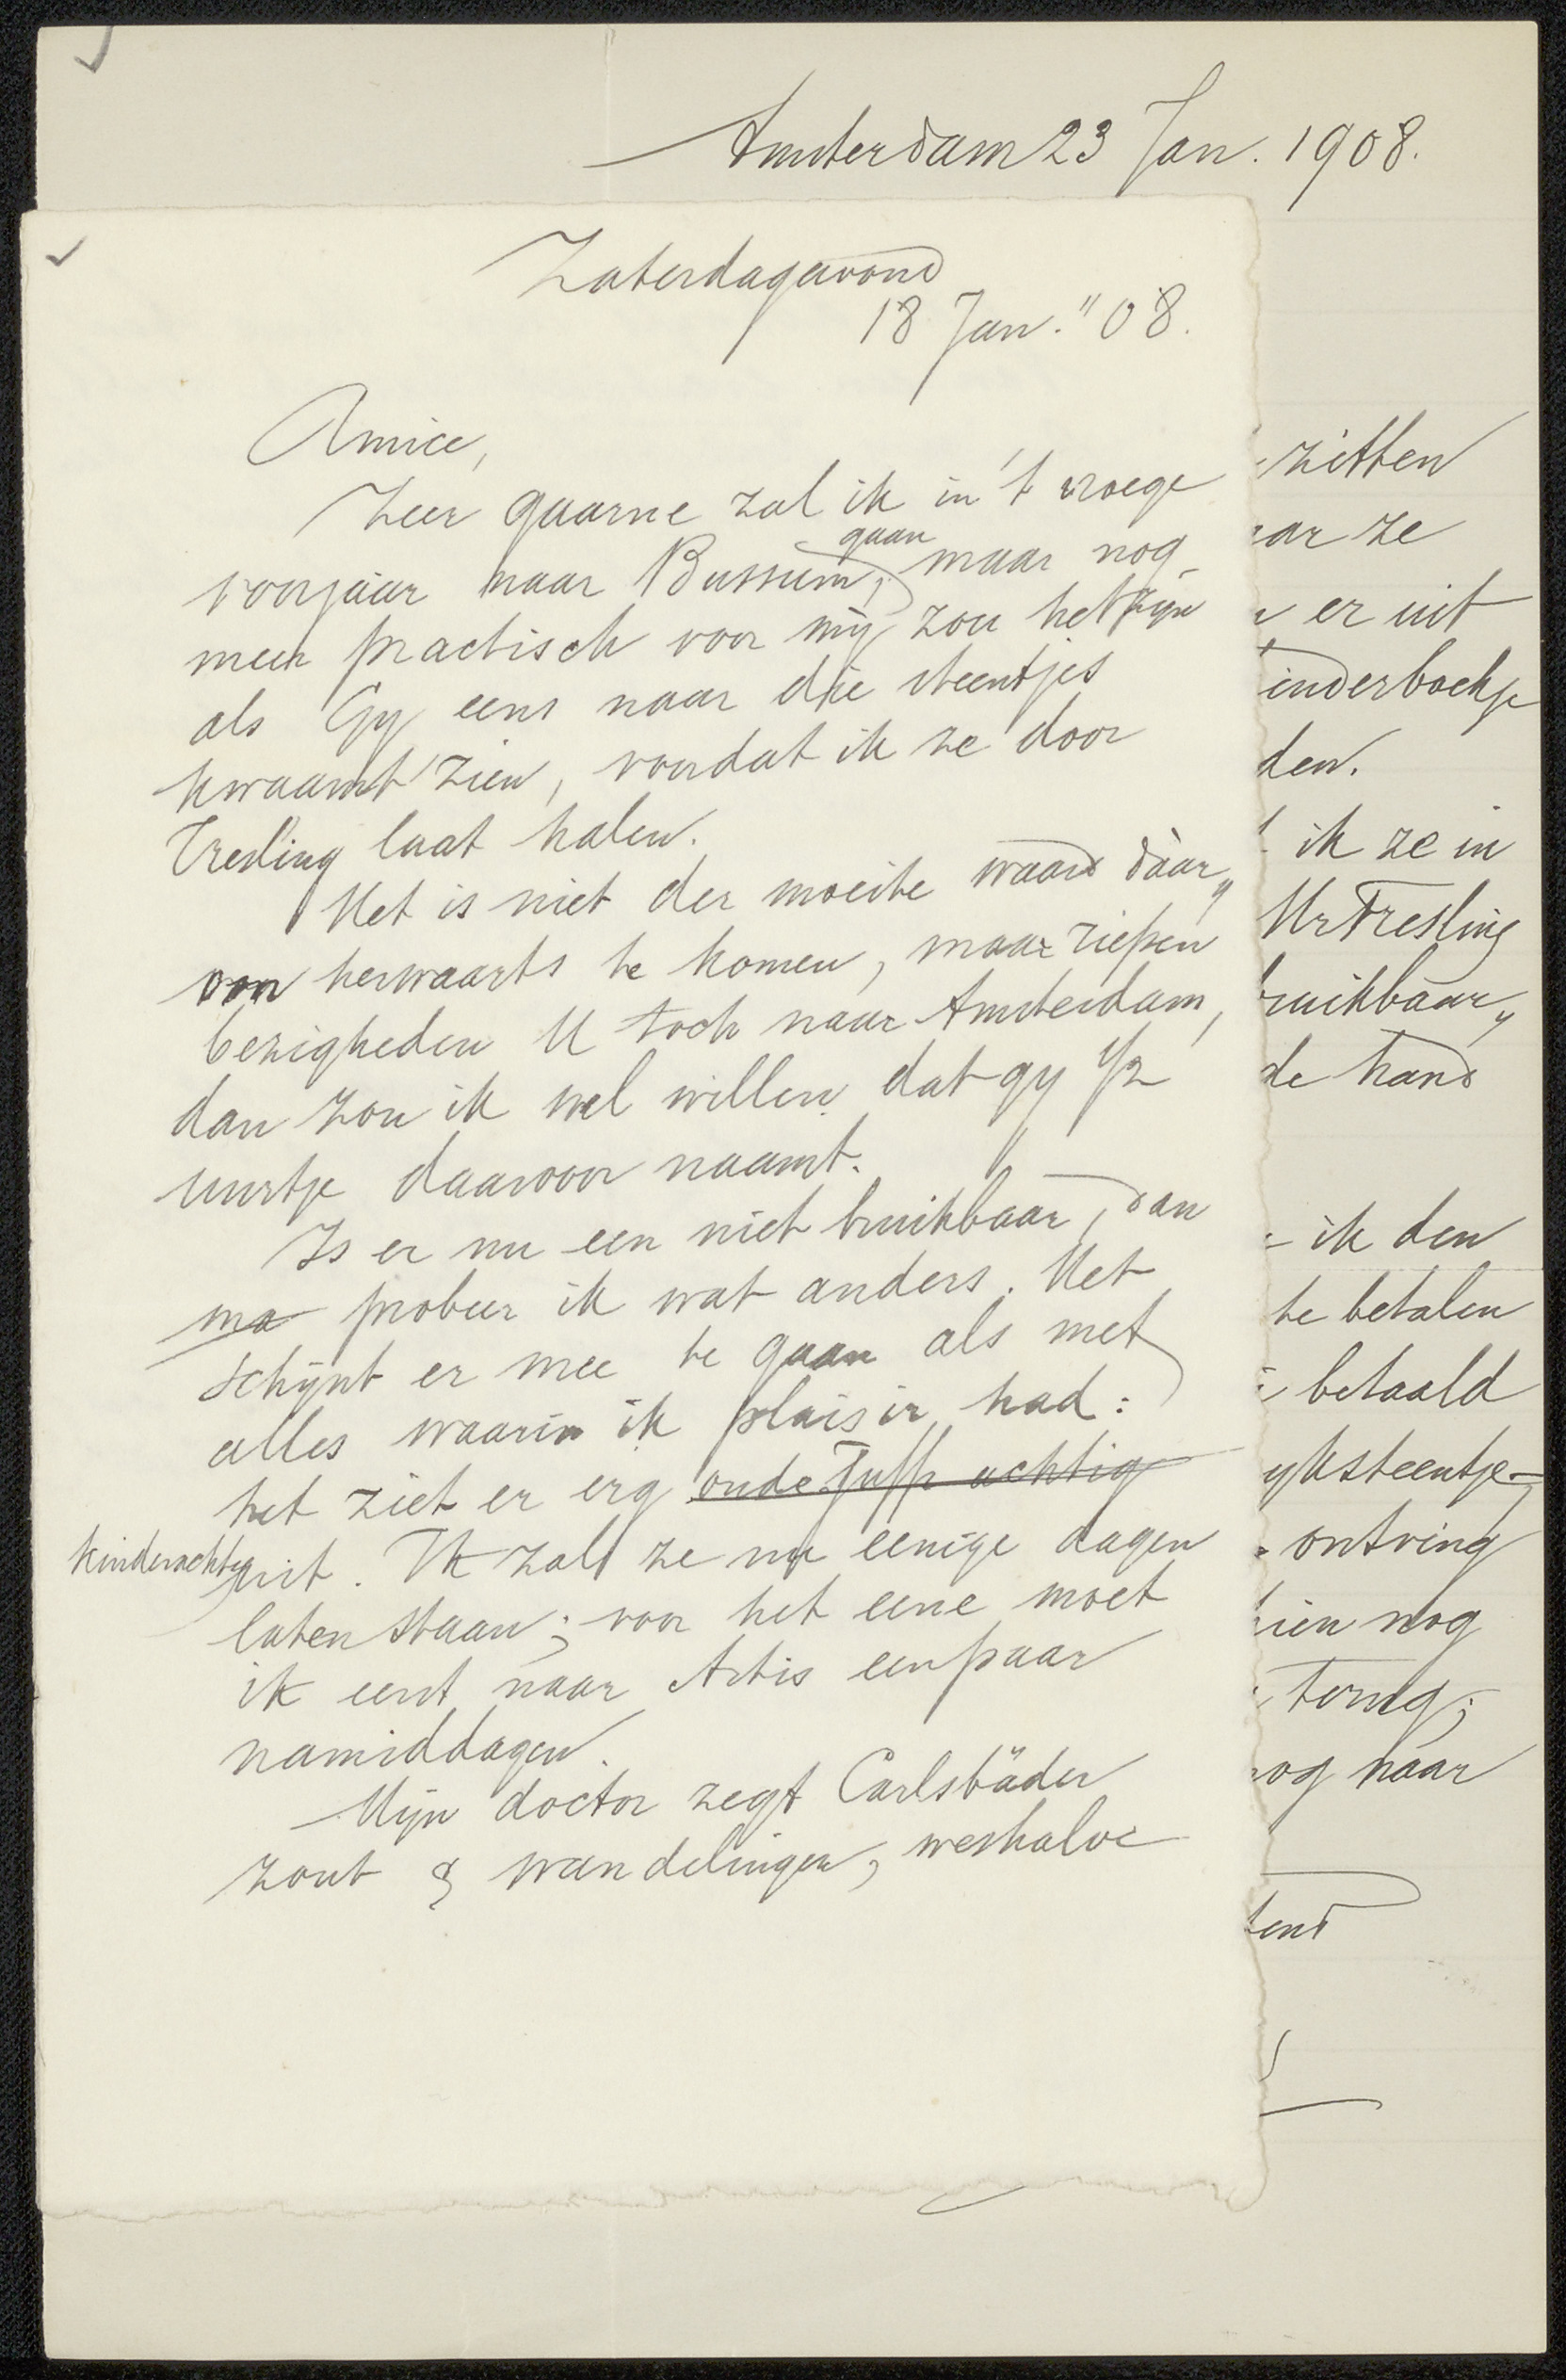 Amsterdam 23 Jan. 1908.
Zaterdagavond
18 Jan. "08.
Amice,
Zeer gaarne zal ik in 't vroege
voorjaar naar Bussum gaan, maar nog
meer practisch voor mij zou het zijn
als Gy eens naar die steentjes
kwaamt zien, voordat ik ze door
Tresling laat halen.
Het is niet der moeite waard dààr„
van herwaarts te komen, maar riepen
bezigheden U toch naar Amsterdam,
dan zou ik wel willen dat gy 1/2
uurtje daarvoor naamt.
Is er nu een niet bruikbaar, dan
ma probeer ik wat anders. Het
schijnt er mee te gaan als met
alles waarin ik plaisir had:
het ziet er erg oude Juffr achtig
kinderachtig uit. Ik zal ze nu eenige dagen
laten staan; voor het eene moet
ik eerst naar Artis een paar
namiddagen.
Mijn doctor zegt Carlsbäder
zout & wandelingen, weshalve
zitten
ar ze
er uit
inderboekje
den.
ik ze in
Mr Tresling
ruikbaar„
de hand
ik den
te betalen
betaald
yksteentje
ontving
ien nog
terug;
og naar
tend